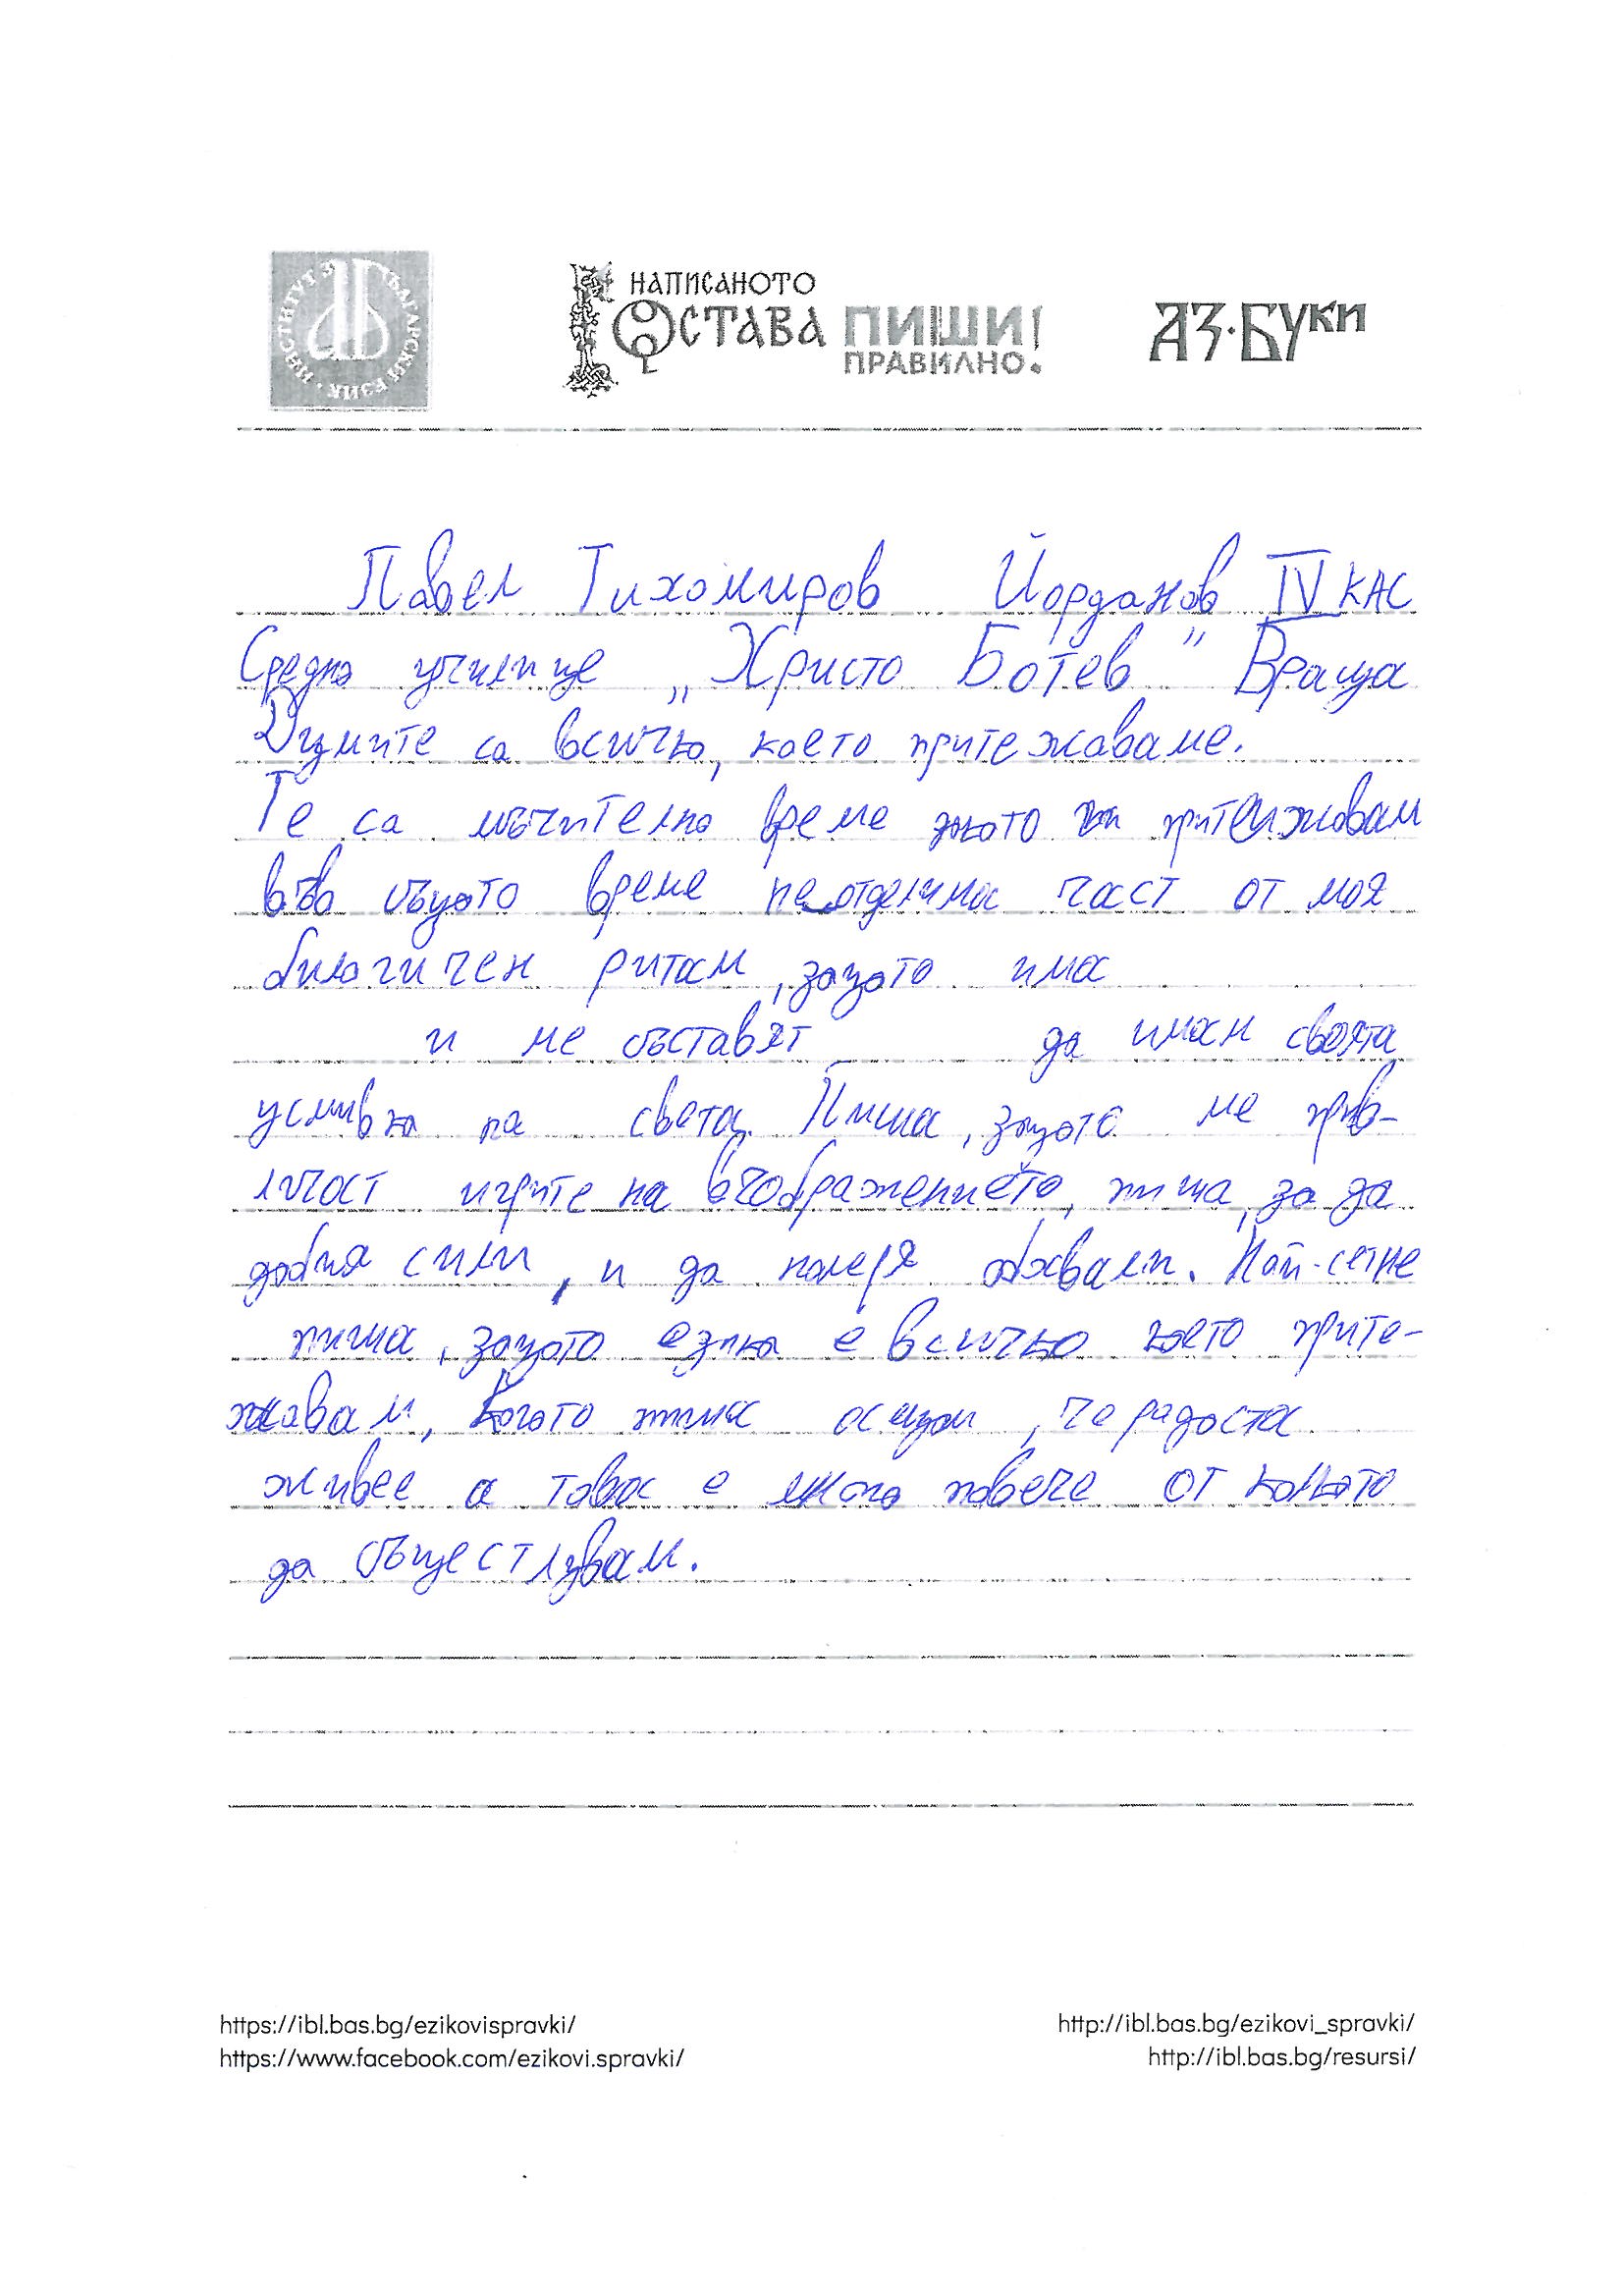 ИНСТИТУТ ЗА БЪЛГАРСКИ ЕЗИК
НАПИСАНОТО
ОСТАВА ПИШИ!
ПРАВИЛНО.
АЗ·БУКИ
Павел Тихомиров Йорданов IV КАС
Средно училище „Христо Ботев" Враца
Думите са всичко, което притежаваме.
Те са мъчително време
във същото време неотделима част от моя
билогичен ритам, защото има
и ме съставят да имам своята
усмивка на света. Пиша, защото ме прив-
личаст игрите на въображението, пиша, за да
добия сили, и да намеря похвали. Най-сетне
пиша, защото езика е всичко което прите-
жавам, когато пиша осещам, че радоста
живее а това е много повече от колкото
да съществувам.
https://ibl.bas.bg/ezikovispravki/
https://www.facebook.com/ezikovi.spravki/
http://ibl.bas.bg/ezikovi_spravki/
http://ibl.bas.bg/resursi/